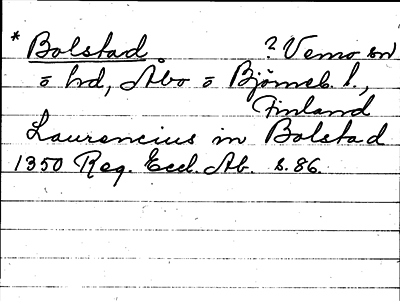 * Bolstad ? Vemo sn
ö hd, Åbo o Björneb. l.,
Finland
Laurencius in Bolstad
1350 Reg. Eccl. Ab. s. 86.